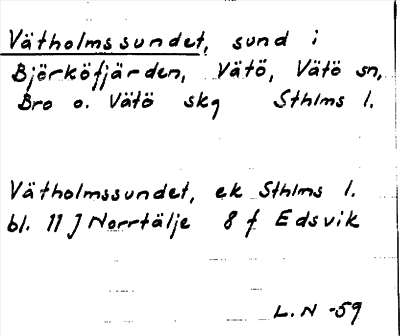 Vätholmssundet, sund i
Björköfjärden, Vätö, Vätö sn,
Bro o. Vätö skg Sthlms l.
Vätholmssundet, ek Sthlms l.
bl. 11 J Norrtälje 8 f Edsvik
L.N -59